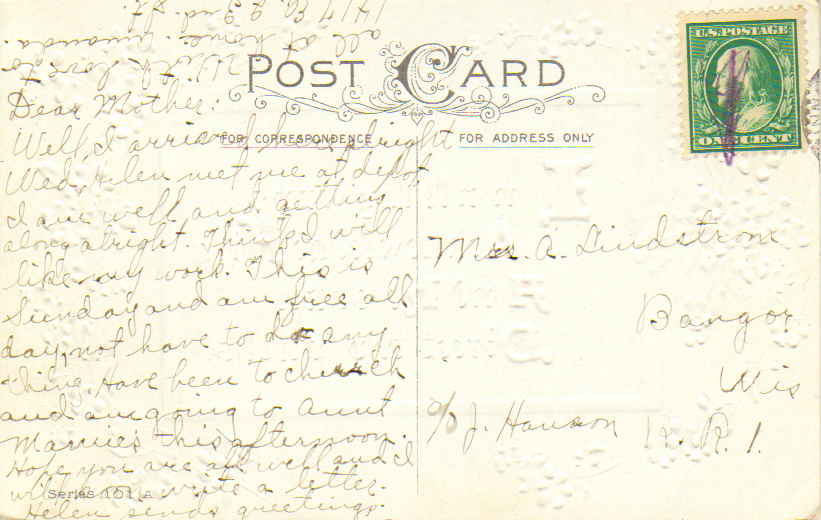 POST CARD
FOR CORRESPONDENCE
FOR ADDRESS ONLY
U.S. POSTAGE
ONE CENT
Dear Mother:
Well, I arrived here alright
Wed, Helen met me at depot,
I am well and getting
along alright. Think I will
like my work. This is
Sunday and am free all
day, not have to do any
thing. Have been to church
and am going to Aunt
Mamie's this afternoon.
Hope you are all well and I
will soon write a letter.
Helen sends greetings.
With love to
all at home. Amanda.
1417 E. 23rd. St.
Mrs. A. Lindstrom
Bangor
Wis
c/o J. Hanson R. R. 1.
Series 101 A